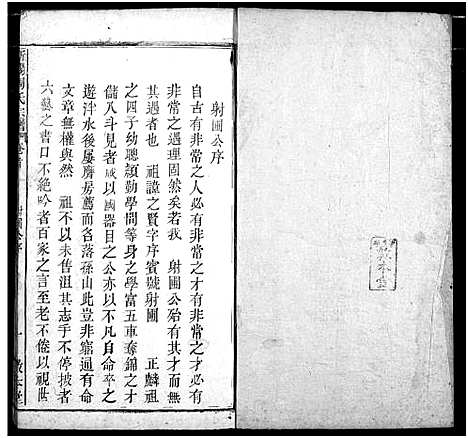 射圃公序
自古有非常之人必有非常之才有非常之才必有
非常之遇理固然矣若我　射圃公殆有其才而無
其遇者也　祖諱之賢字序賓號射圃　正麟祖
之四子幼聰頴勤學問等身之學富五車奪錦之才
儲八斗見者咸以國器目之公亦以不凡自命卒之
遊泮水後屢薦房薦而名落孫山此豈非窮通有命
文章無權與然　祖不以未售沮其志手不停披者
六藝之書口不絶吟者百家之言至老不倦以視世
射圃公序
一